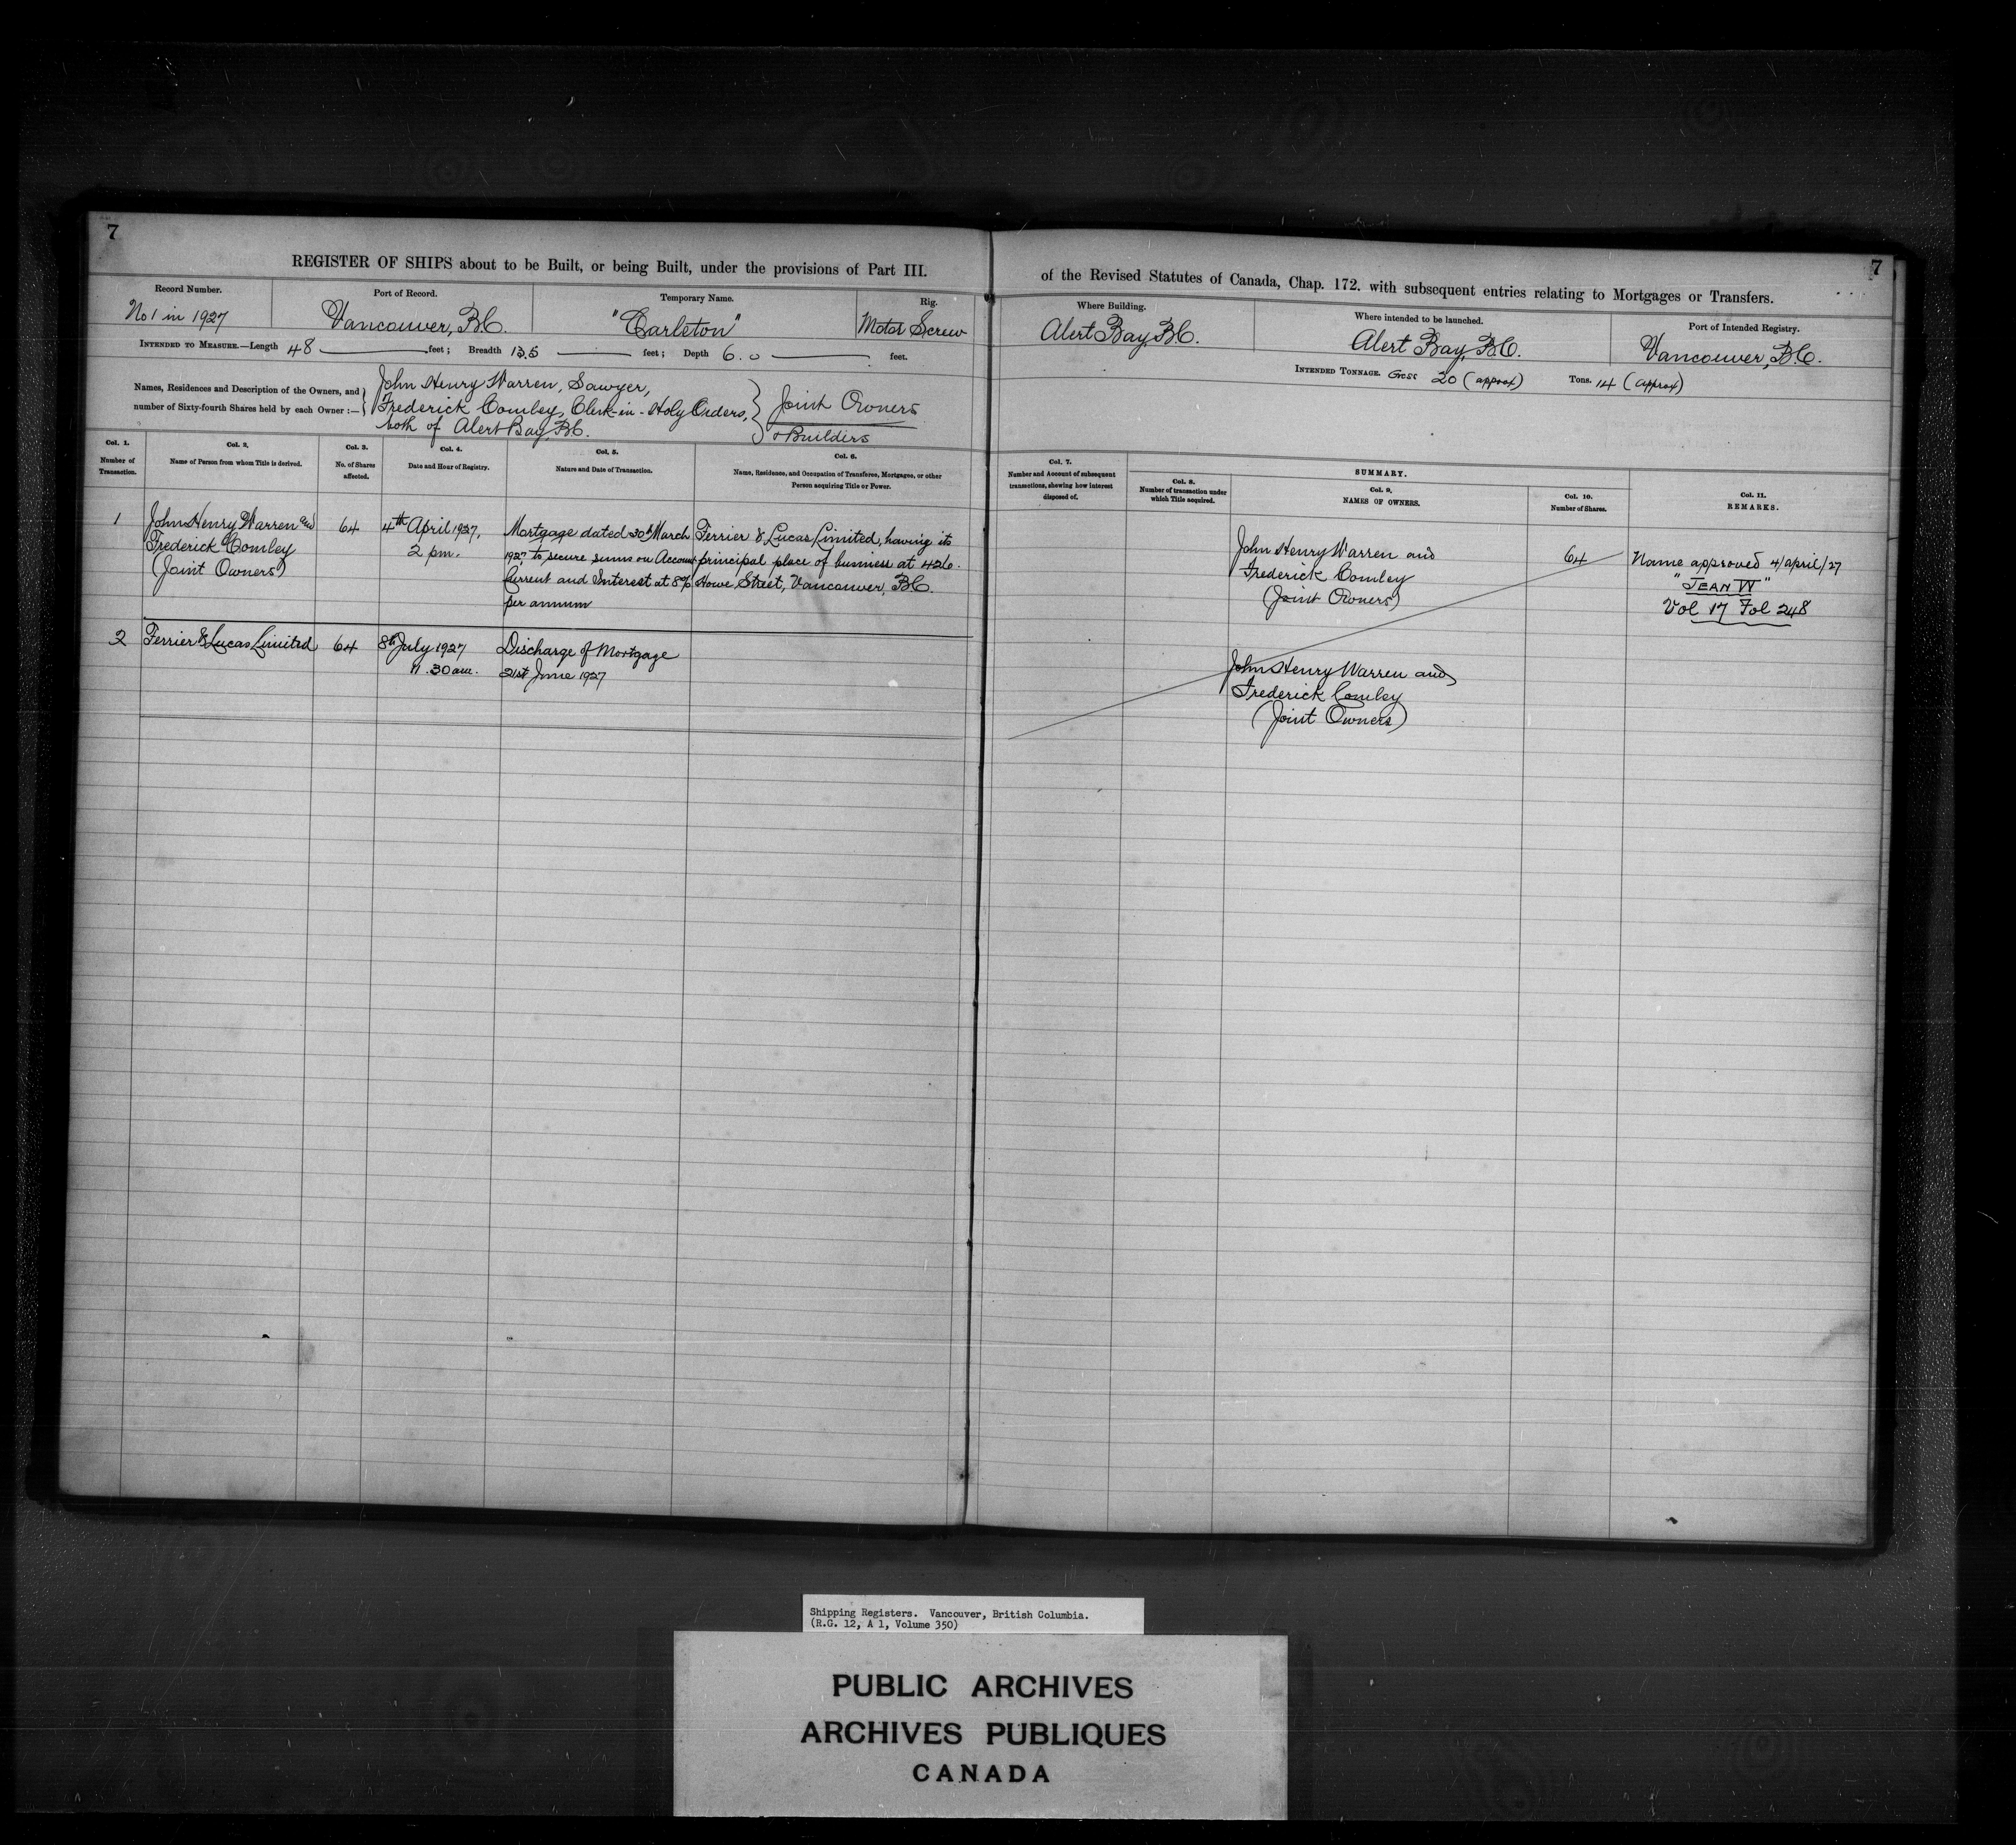 7
REGISTER OF SHIPS about to be Built, or being Built, under the provisions of Part III.
Record Number.
No 1 in 1927
Port of Record.
Vancouver, B.C.
Temporary Name.
"Carleton"
Rig.
Motor Screw
INTENDED TO MEASURE.—Length 48 feet; Breadth 13.5 feet; Depth 6.0 feet.
Names, Residences and Description of the Owners, and
number of Sixty-fourth Shares held by each Owner :—
John Henry Warren, Sawyer,
Frederick Comley, Clerk-in-Holy Orders,
both of Alert Bay, B.C.
Joint Owners
& Builders
Col. 1.
Number of
Transaction.
Col. 2.
Name of Person from whom Title is derived.
Col. 3.
No. of Shares
affected.
Col. 4.
Date and Hour of Registry.
Col. 5.
Nature and Date of Transaction.
Col. 6.
Name, Residence, and Occupation of Transferee, Mortgagee, or other
Person acquiring Title or Power.
1
John Henry Warren and
Frederick Comley
(Joint Owners)
64
4th April 1927,
2 pm.
Mortgage dated 30th March
1927, to secure sums on Account
Current and Interest at 8%
per annum
Ferrier & Lucas Limited, having its
principal place of business at 426
Howe Street, Vancouver, B.C.
2
Ferrier & Lucas Limited
64
8th July 1927
11.30 am.
Discharge of Mortgage
21st June 1927
7
of the Revised Statutes of Canada, Chap. 172. with subsequent entries relating to Mortgages or Transfers.
Where Building.
Alert Bay, B.C.
Where intended to be launched.
Alert Bay, B.C.
Port of Intended Registry.
Vancouver, B.C.
INTENDED TONNAGE. Gross 20 (approx) Tons. 14 (approx)
Col. 7.
Number and Account of subsequent
transactions, showing how interest
disposed of.
SUMMARY.
Col. 8.
Number of transaction under
which Title acquired.
Col. 9.
NAMES OF OWNERS.
Col. 10.
Number of Shares.
Col. 11.
REMARKS.
John Henry Warren and
Frederick Comley
(Joint Owners)
64
Name approved 4/april/27
"JEAN W"
Vol 17 Fol 248
John Henry Warren and
Frederick Comley
(Joint Owners)
Shipping Registers. Vancouver, British Columbia.
(R.G. 12, A 1, Volume 350)
PUBLIC ARCHIVES
ARCHIVES PUBLIQUES
CANADA